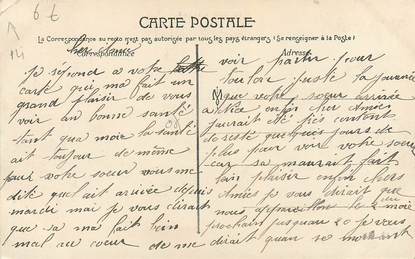 66
14
CARTE POSTALE
La Correspondance au recto n'est pas autorisée par tous les pays étrangers (Se renseigner à la Poste)
Correspondance
Cher Amis
je répond a votre
carte qui ma fait un
grand plaisir de vous
voir en bonne santé
tant qua moie la santé
ait toujour de même
pour votre soeur vous me
dite quel ait arrivée depuis
mardi mai je vous dirait
que sa ma fait bien
mal au coeur de ne
Adresse
voir partir pour
toulon juste la journée
que votre soeur arrivée
a Nice enfin cher Amies
jaurrait été très content
de resté quelques jours de
plus pour voir votre soeur
car sa maurrait fait
bien plaisir enfin chers
Amies je vous dirait que
nous le moie
prochain jusquau 20 je vous
dirait quan se moment